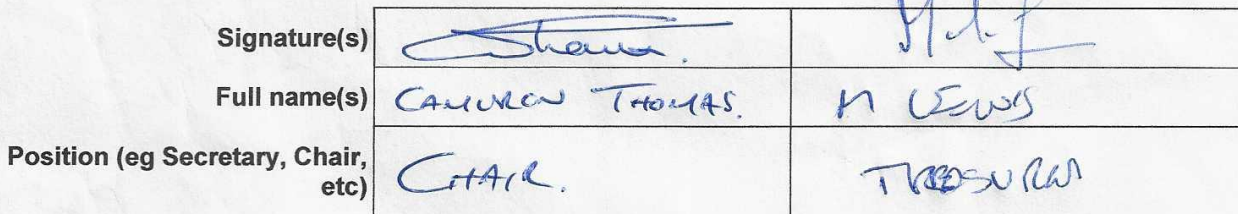 Signature(s)
Full name(s) CAMERON THOMAS. M LEWIS
Position (eg Secretary, Chair,
etc) CHAIR. TREASURER